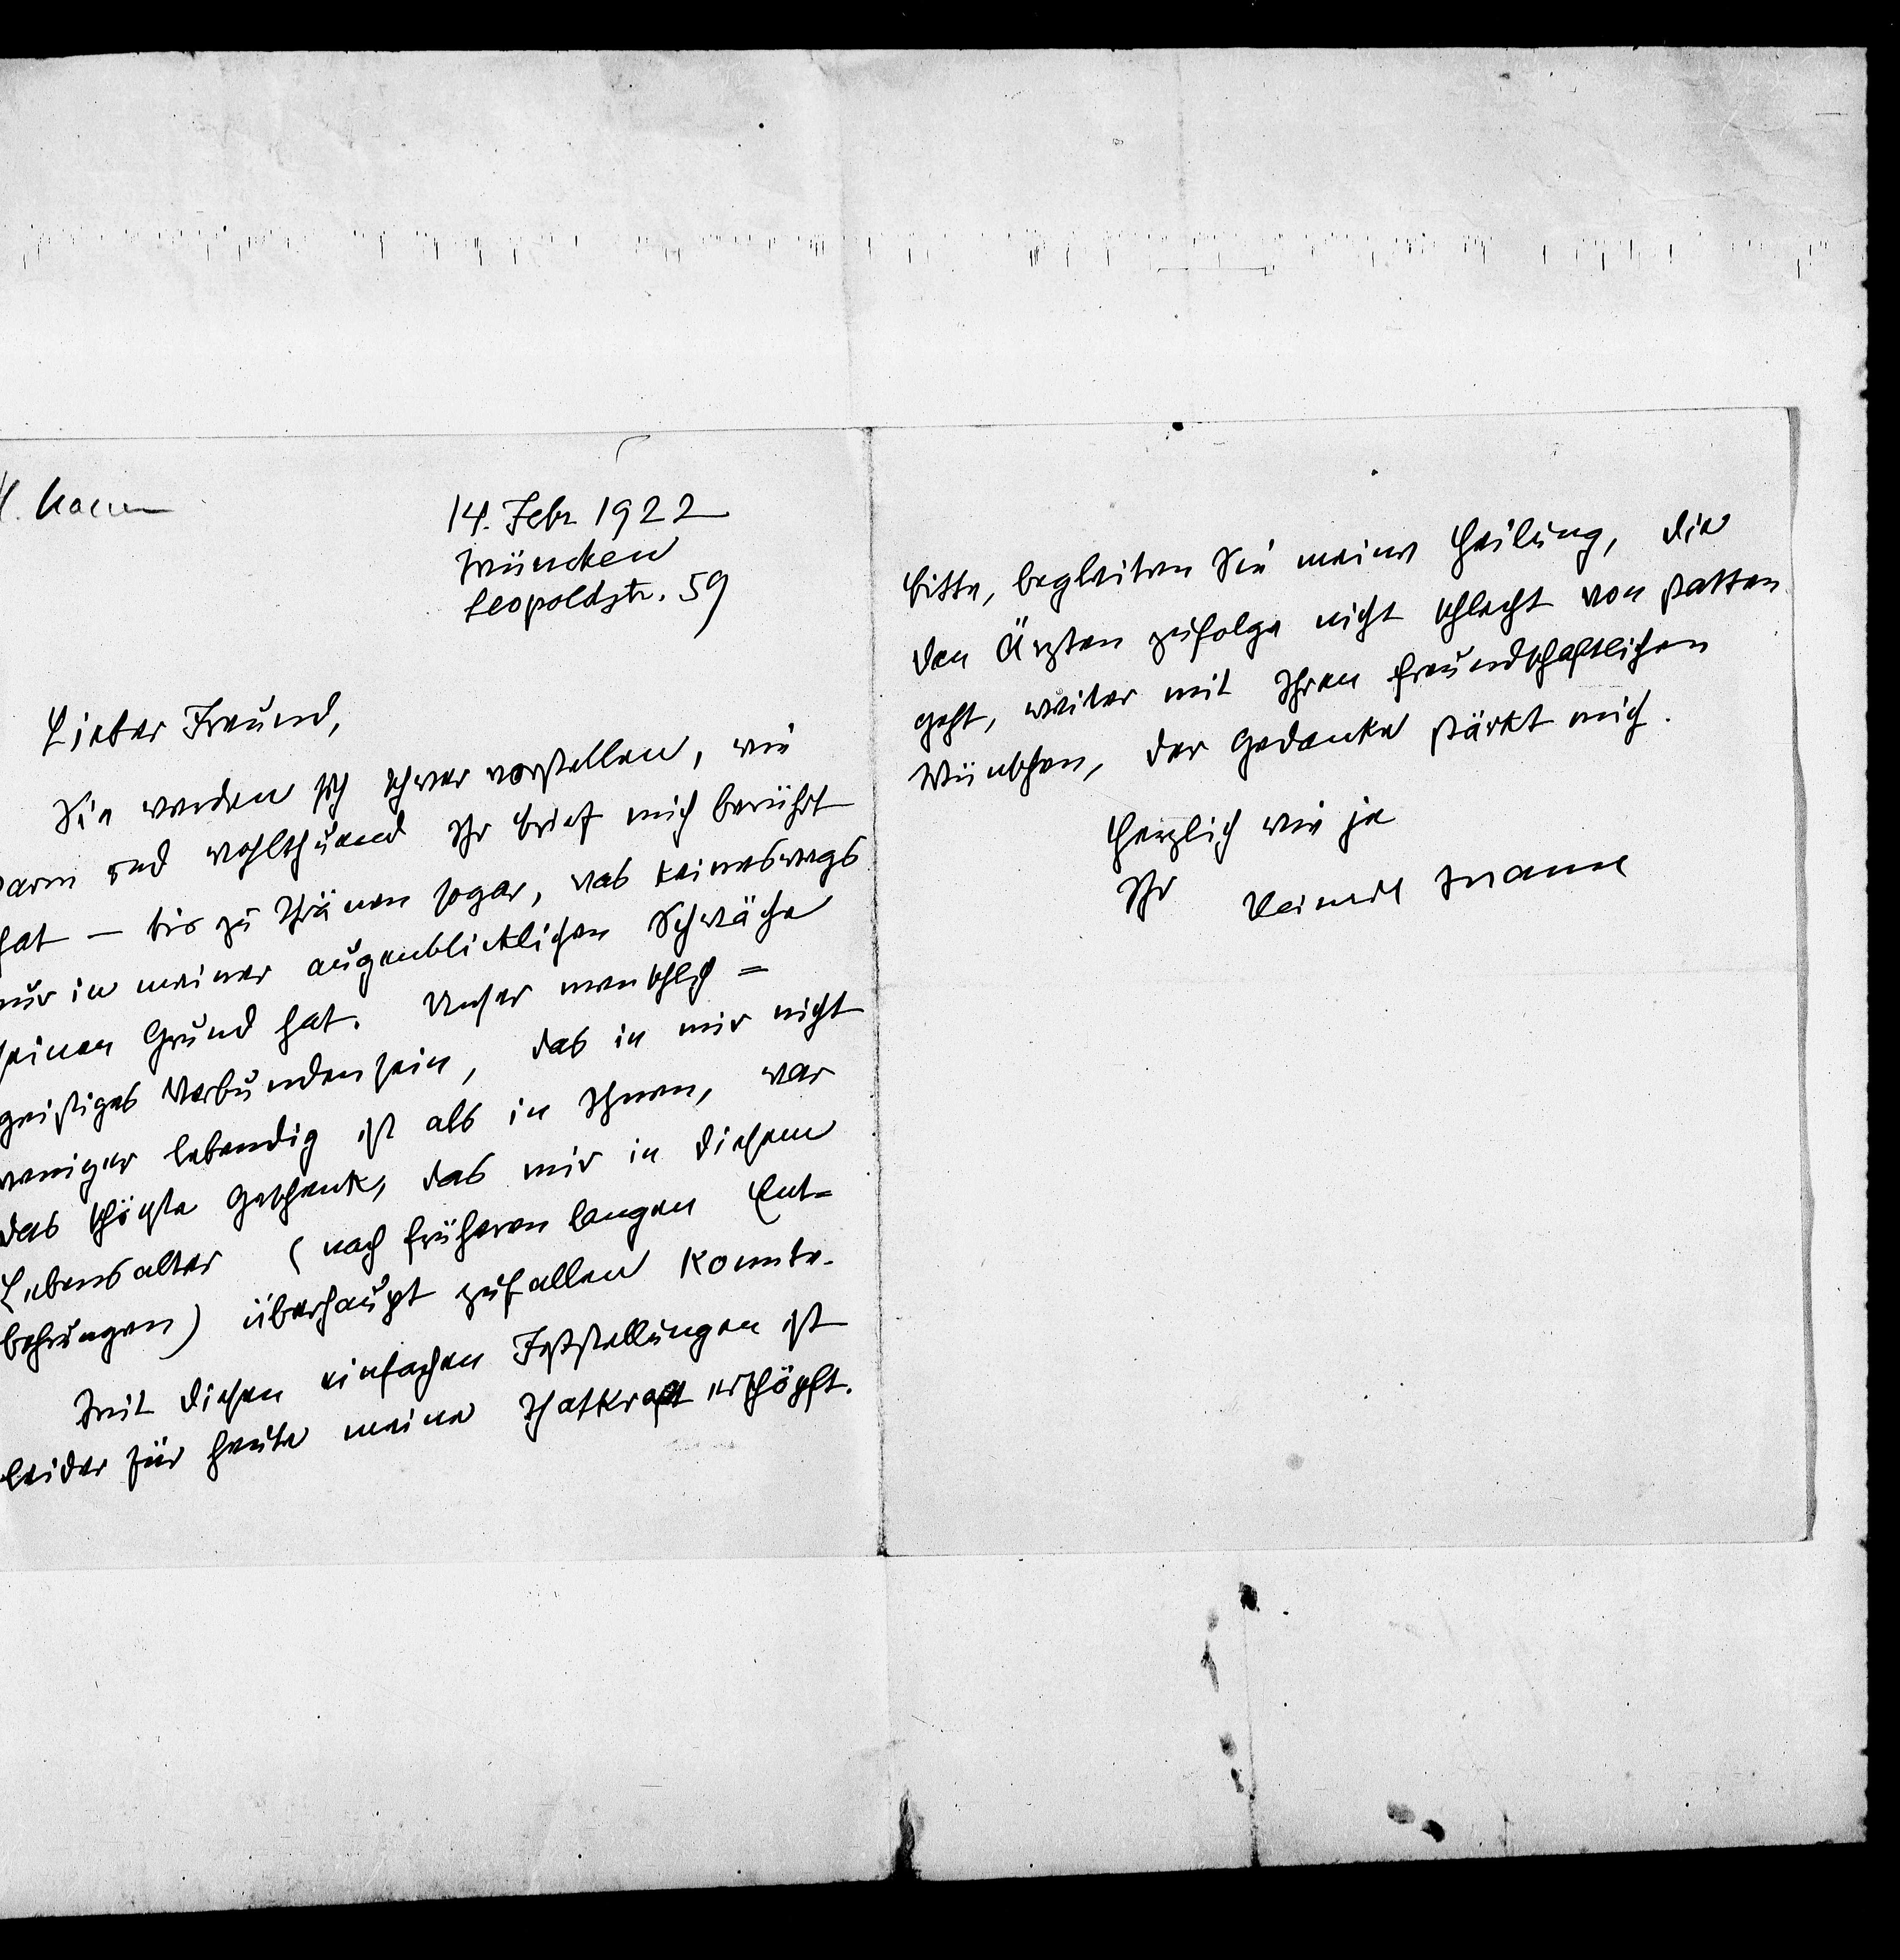 H. Mann
14. Febr 1922
München
Leopoldstr. 59
Lieber Freund,
Sie werden sich schwer vorstellen, wie
warm und wohlthuend Ihr Brief mich berührt
hat — bis zu Thränen sogar, was keineswegs
nur in meiner augenblicklichen Schwäche
seinen Grund hat. Unser menschlich=
geistiges Verbundensein, das in mir nicht
weniger lebendig ist als in Ihnen, war
das schönste Geschenk, das mir in diesem
Lebensalter (nach früheren langen Ent=
behrungen) überhaupt zufallen konnte.
Mit diesen einfachen Feststellungen ist
leider für heute meine Thatkraft erschöpft.
Bitte, begleiten Sie meine Heilung, die
den Ärzten zufolge nicht schlecht von statten
geht, weiter mit Ihren freundschaftlichen
Wünschen, der Gedanke stärkt mich.
Herzlich wie je
Ihr Heinrich Mann